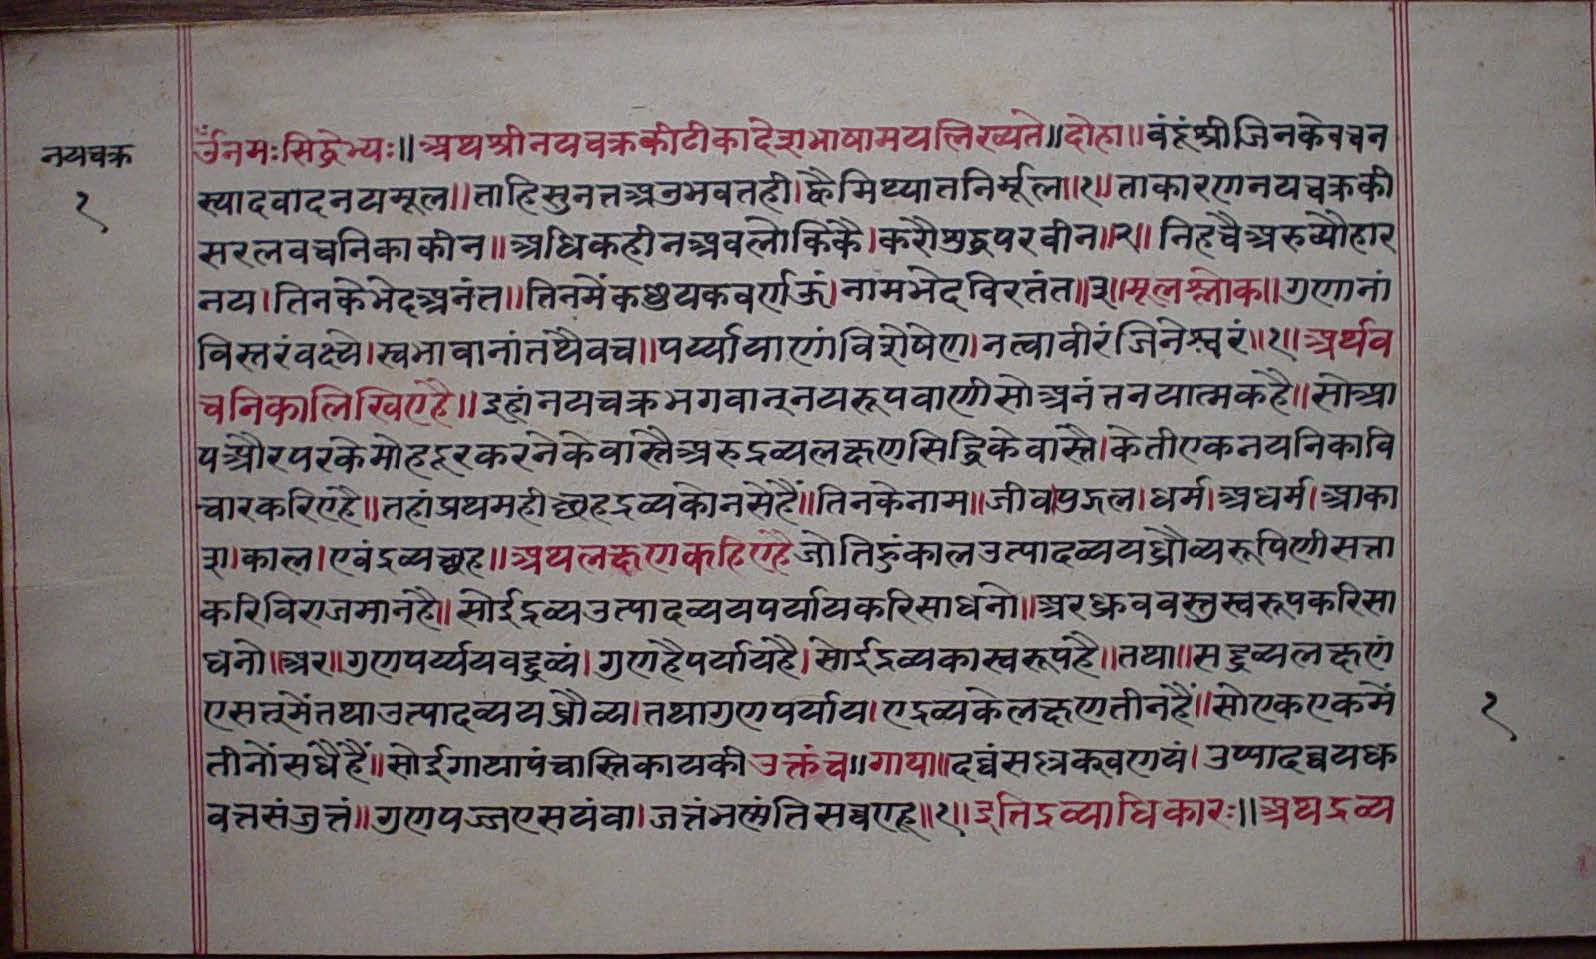 नयचक्र
१
ॐनमःसिद्धेभ्यः॥ अथश्रीनयचक्रकीटीकादेशभाषामयलिख्यते॥दोहा॥ वंदूंश्रीजिनकेवचन
स्यादवादनयमूल॥ताहिसुनतअनुभवतही।ह्वैमिथ्यातनिर्मूल॥१॥ ताकारणनयचक्रकी
सरलवचनिकाकीन॥अधिकहीनअवलोकिकै।करौशुद्धपरवीन॥२॥ निहचैअरुव्यौहार
नय।तिनकेभेदअनंत॥तिनमेंकछुयकवर्णऊं।नामभेदविरतंत॥३॥मूलश्लोक॥ गुणानां
विस्तरंवक्ष्ये।स्वभावानांतथैवच॥पर्य्यायाणांविशेषेण।नत्वावीरंजिनेश्वरं॥१॥ अर्थव
चनिकालिखिएहै॥ इहांनयचक्रभगवान्नयरूपवाणीसोअनंतनयात्मकहै॥ सोआ
पऔरपरकेमोहदूरकरनेकेवास्तैअरुद्रव्यलक्षणसिद्धिकेवास्तै।केतीएकनयनिकावि
चारकरिएहै॥तहांप्रथमहीछहद्रव्यकोनसेहैं॥तिनकेनाम॥जीव।पुद्गल।धर्म।अधर्म।आका
श।काल।एवंद्रव्यछह॥अथलक्षणकहिएहै जोतिहुंकालउत्पादव्ययध्रौव्यरूपिणीसत्ता
करिविराजमानहै॥सोईद्रव्यउत्पादव्ययपर्यायकरिसाधनो॥अरध्रुववस्तुस्वरूपकरिसा
धनो॥अर॥गुणपर्य्ययवद्द्रव्यं।गुणहैपर्यायहै।सोईद्रव्यकास्वरूपहै॥तथा॥सद्द्रव्यलक्षणं
एसत्‌मेंतथाउत्पादव्ययध्रौव्य।तथागुणपर्याय।एद्रव्यकेलक्षणतीनहैं॥सोएकएकमें
तीनोंसधैंहैं॥सोईगाथापंचास्तिकायकी उक्तंच॥गाथा॥दव्वंसल्लक्खणयं।उप्पादव्वयधु
वत्तसंजुत्तं॥गुणपज्जएसयंवा।जत्तंभणंतिसव्वएहू॥१॥ इतिद्रव्याधिकारः॥अथद्रव्य
१